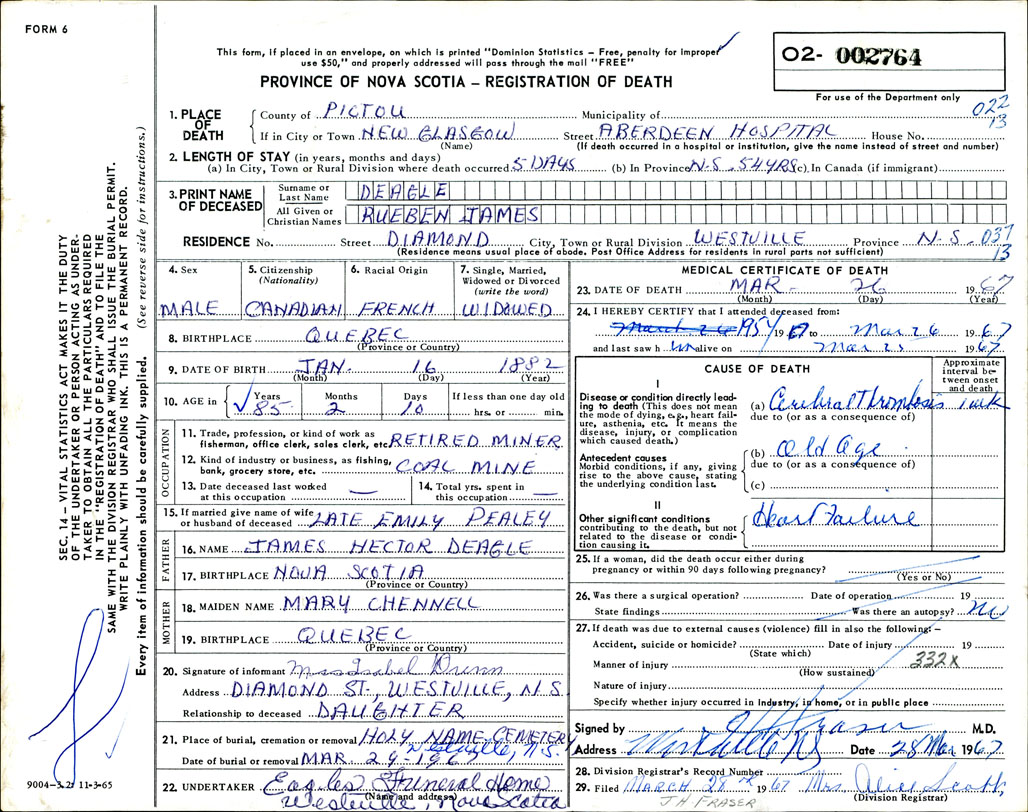 FORM 6
This form, if placed in an envelope, on which is printed "Dominion Statistics – Free, penalty for improper
use $50," and properly addressed will pass through the mail "FREE"
PROVINCE OF NOVA SCOTIA – REGISTRATION OF DEATH
O2- 002764
For use of the Department only
022
13
1. PLACE OF DEATH
County of PICTOU Municipality of
If in City or Town NEW GLASGOW Street ABERDEEN HOSPITAL House No.
(Name) (If death occurred in a hospital or institution, give the name instead of street and number)
2. LENGTH OF STAY (in years, months and days)
(a) In City, Town or Rural Division where death occurred 5 DAYS (b) In Province N.S. 54 YRS (c) In Canada (if immigrant)
3. PRINT NAME OF DECEASED
Surname or Last Name DEAGLE
All Given or Christian Names RUEBEN JAMES
RESIDENCE No. Street DIAMOND City, Town or Rural Division WESTVILLE Province N.S. 037
13
(Residence means usual place of abode. Post Office Address for residents in rural parts not sufficient)
4. Sex MALE
5. Citizenship (Nationality) CANADIAN
6. Racial Origin FRENCH
7. Single, Married, Widowed or Divorced (write the word) WIDOWED
8. BIRTHPLACE QUEBEC
(Province or Country)
9. DATE OF BIRTH JAN. 16 1882
(Month) (Day) (Year)
10. AGE in Years 85 Months 2 Days 10 If less than one day old hrs. or min.
OCCUPATION
11. Trade, profession, or kind of work as
fisherman, office clerk, sales clerk, etc. RETIRED MINER
12. Kind of industry or business, as fishing,
bank, grocery store, etc. COAL MINE
13. Date deceased last worked
at this occupation —
14. Total yrs. spent in
this occupation —
15. If married give name of wife
or husband of deceased LATE EMILY PEALEY
FATHER
16. NAME JAMES HECTOR DEAGLE
17. BIRTHPLACE NOVA SCOTIA
(Province or Country)
MOTHER
18. MAIDEN NAME MARY CHENNELL
19. BIRTHPLACE QUEBEC
(Province or Country)
20. Signature of informant Mrs Isabel Dunn
Address DIAMOND ST., WESTVILLE, N.S.
Relationship to deceased DAUGHTER
21. Place of burial, cremation or removal HOLY NAME CEMETERY
Westville, N.S.
Date of burial or removal MAR 29-1967
22. UNDERTAKER Eagles Funeral Home
(Name and address)
Westville Nova Scotia
MEDICAL CERTIFICATE OF DEATH
23. DATE OF DEATH MAR. 26 1967
(Month) (Day) (Year)
24. I HEREBY CERTIFY that I attended deceased from:
March 26 1954 19 to Mar 26 1967
and last saw him alive on Mar 25 1967
CAUSE OF DEATH
Approximate interval between onset and death
I
Disease or condition directly leading to death (This does not mean the mode of dying, e.g., heart failure, asthenia, etc. It means the disease, injury, or complication which caused death.)
(a) Cerebral Thrombosis 1 wk
due to (or as a consequence of)
Antecedent causes
Morbid conditions, if any, giving rise to the above cause, stating the underlying condition last.
(b) Old Age
due to (or as a consequence of)
(c)
II
Other significant conditions
contributing to the death, but not related to the disease or condition causing it.
Heart Failure
25. If a woman, did the death occur either during
pregnancy or within 90 days following pregnancy?
(Yes or No)
26. Was there a surgical operation? Date of operation 19
State findings Was there an autopsy? No
27. If death was due to external causes (violence) fill in also the following: –
Accident, suicide or homicide? Date of injury 19
(State which)
332X
Manner of injury
(How sustained)
Nature of injury
Specify whether injury occurred in industry, in home, or in public place
Signed by J H Fraser M.D.
Address Westville NS Date 28 Mar 1967
28. Division Registrar's Record Number
29. Filed MARCH 28th 1967 Mrs. Alice Scott
(Division Registrar)
J H FRASER
SEC. 14 – VITAL STATISTICS ACT MAKES IT THE DUTY
OF THE UNDERTAKER OR PERSON ACTING AS UNDER-
TAKER TO OBTAIN ALL THE PARTICULARS REQUIRED
IN THE "REGISTRATION OF DEATH" AND TO FILE THE
SAME WITH THE DIVISION REGISTRAR WHO SHALL ISSUE THE BURIAL PERMIT.
WRITE PLAINLY WITH UNFADING INK. THIS IS A PERMANENT RECORD.
Every item of information should be carefully supplied. (See reverse side for instructions.)
9004-3.2: 11-3-65